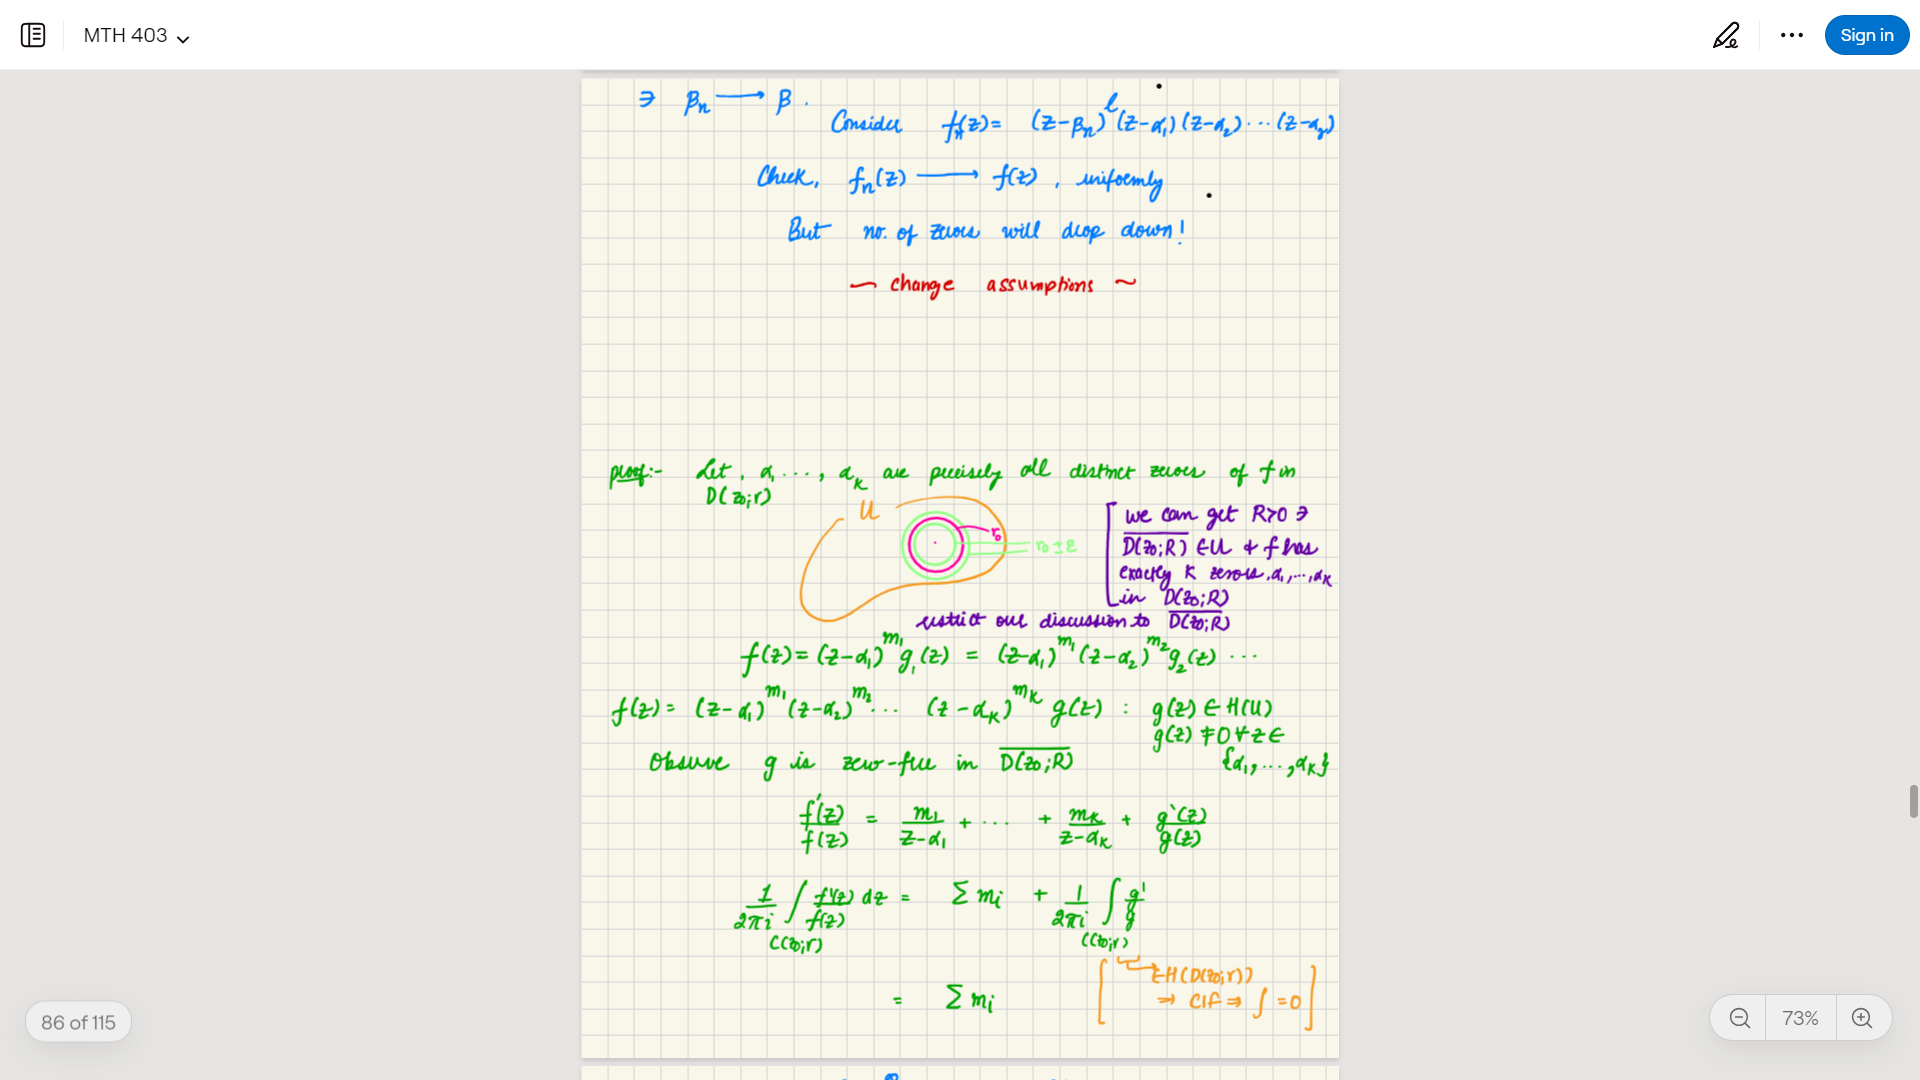 MTH 403
Sign in
∋ βn ⟶ β .
Consider fn(z) = (z-βn)^l (z-α1)(z-α2)···(z-αq)
Check, fn(z) ⟶ f(z) , uniformly
But no. of zeros will drop down!
~ change assumptions ~
proof:- Let , α1 ···, αK are precisely all distinct zeroes of f in
D(z0;r)
U
r0
r0 ± ε
[ we can get R>0 ∋
\overline{D(z0;R)} ∈ U & f has
exactly K zeros, α1,···,αK
in D(z0;R)
restrict our discussion to \overline{D(z0;R)}
f(z) = (z-α1)^{m1} g1(z) = (z-α1)^{m1} (z-α2)^{m2} g2(z) ···
f(z) = (z-α1)^{m1} (z-α2)^{m2} ··· (z-αK)^{mK} g(z) : g(z) ∈ H(U)
g(z) ≠ 0 ∀ z ∈
{α1,···,αK}
Observe g is zero-free in \overline{D(z0;R)}
f'(z)/f(z) = m1/(z-α1) + ··· + mK/(z-αK) + g'(z)/g(z)
1/2πi ∫_{C(z0;r)} f'(z)/f(z) dz = Σ mi + 1/2πi ∫_{C(z0;r)} g'/g
= Σ mi
[ ∈ H(D(z0;r))
⇒ CIF ⇒ ∫ = 0 ]
86 of 115
73%